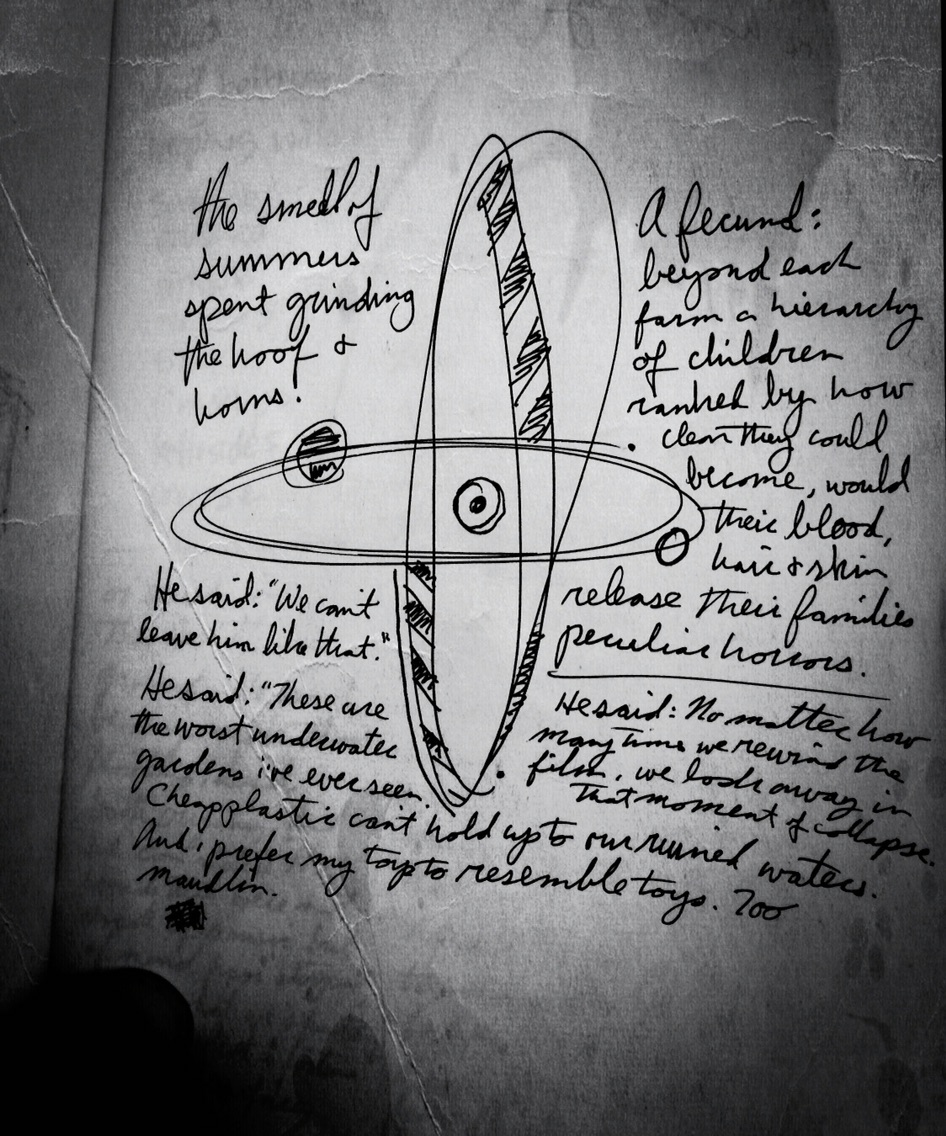 the smell of
summers
spent grinding
the hoof &
horns!
A fecund:
beyond each
farm a hierarchy
of children
ranked by how
clean they could
become, would
their blood,
hair & skin
release their families
peculiar horrors.
He said: "We can't
leave him like that."
He said: "These are
the worst underwater
gardens i've ever seen.
Cheap plastic can't hold up to our ruined waters.
And i prefer my to resemble toys. Too
maudlin.
He said: No matter how
many times we rewind the
film, we look away in
that moment of collapse.